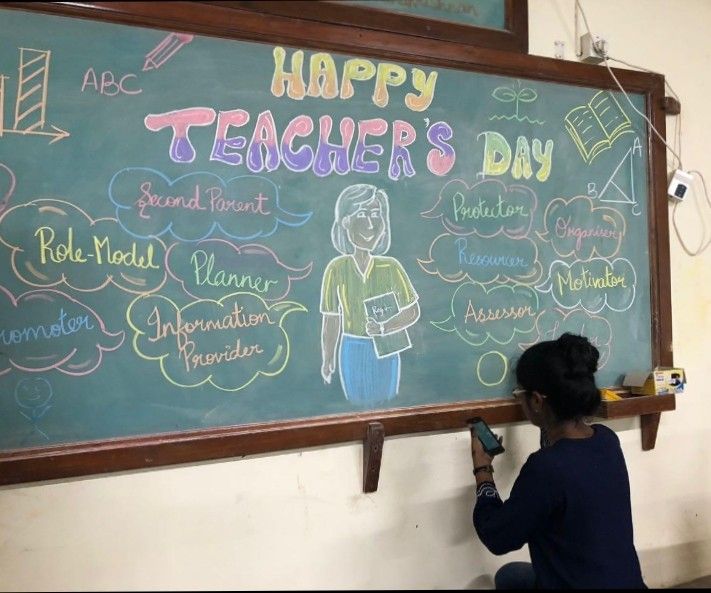 ABC
HAPPY
TEACHER'S DAY
Second Parent
Role-Model
Planner
Information
Provider
Protector
Organiser
Resourcer
Motivator
Assessor
A
B
C